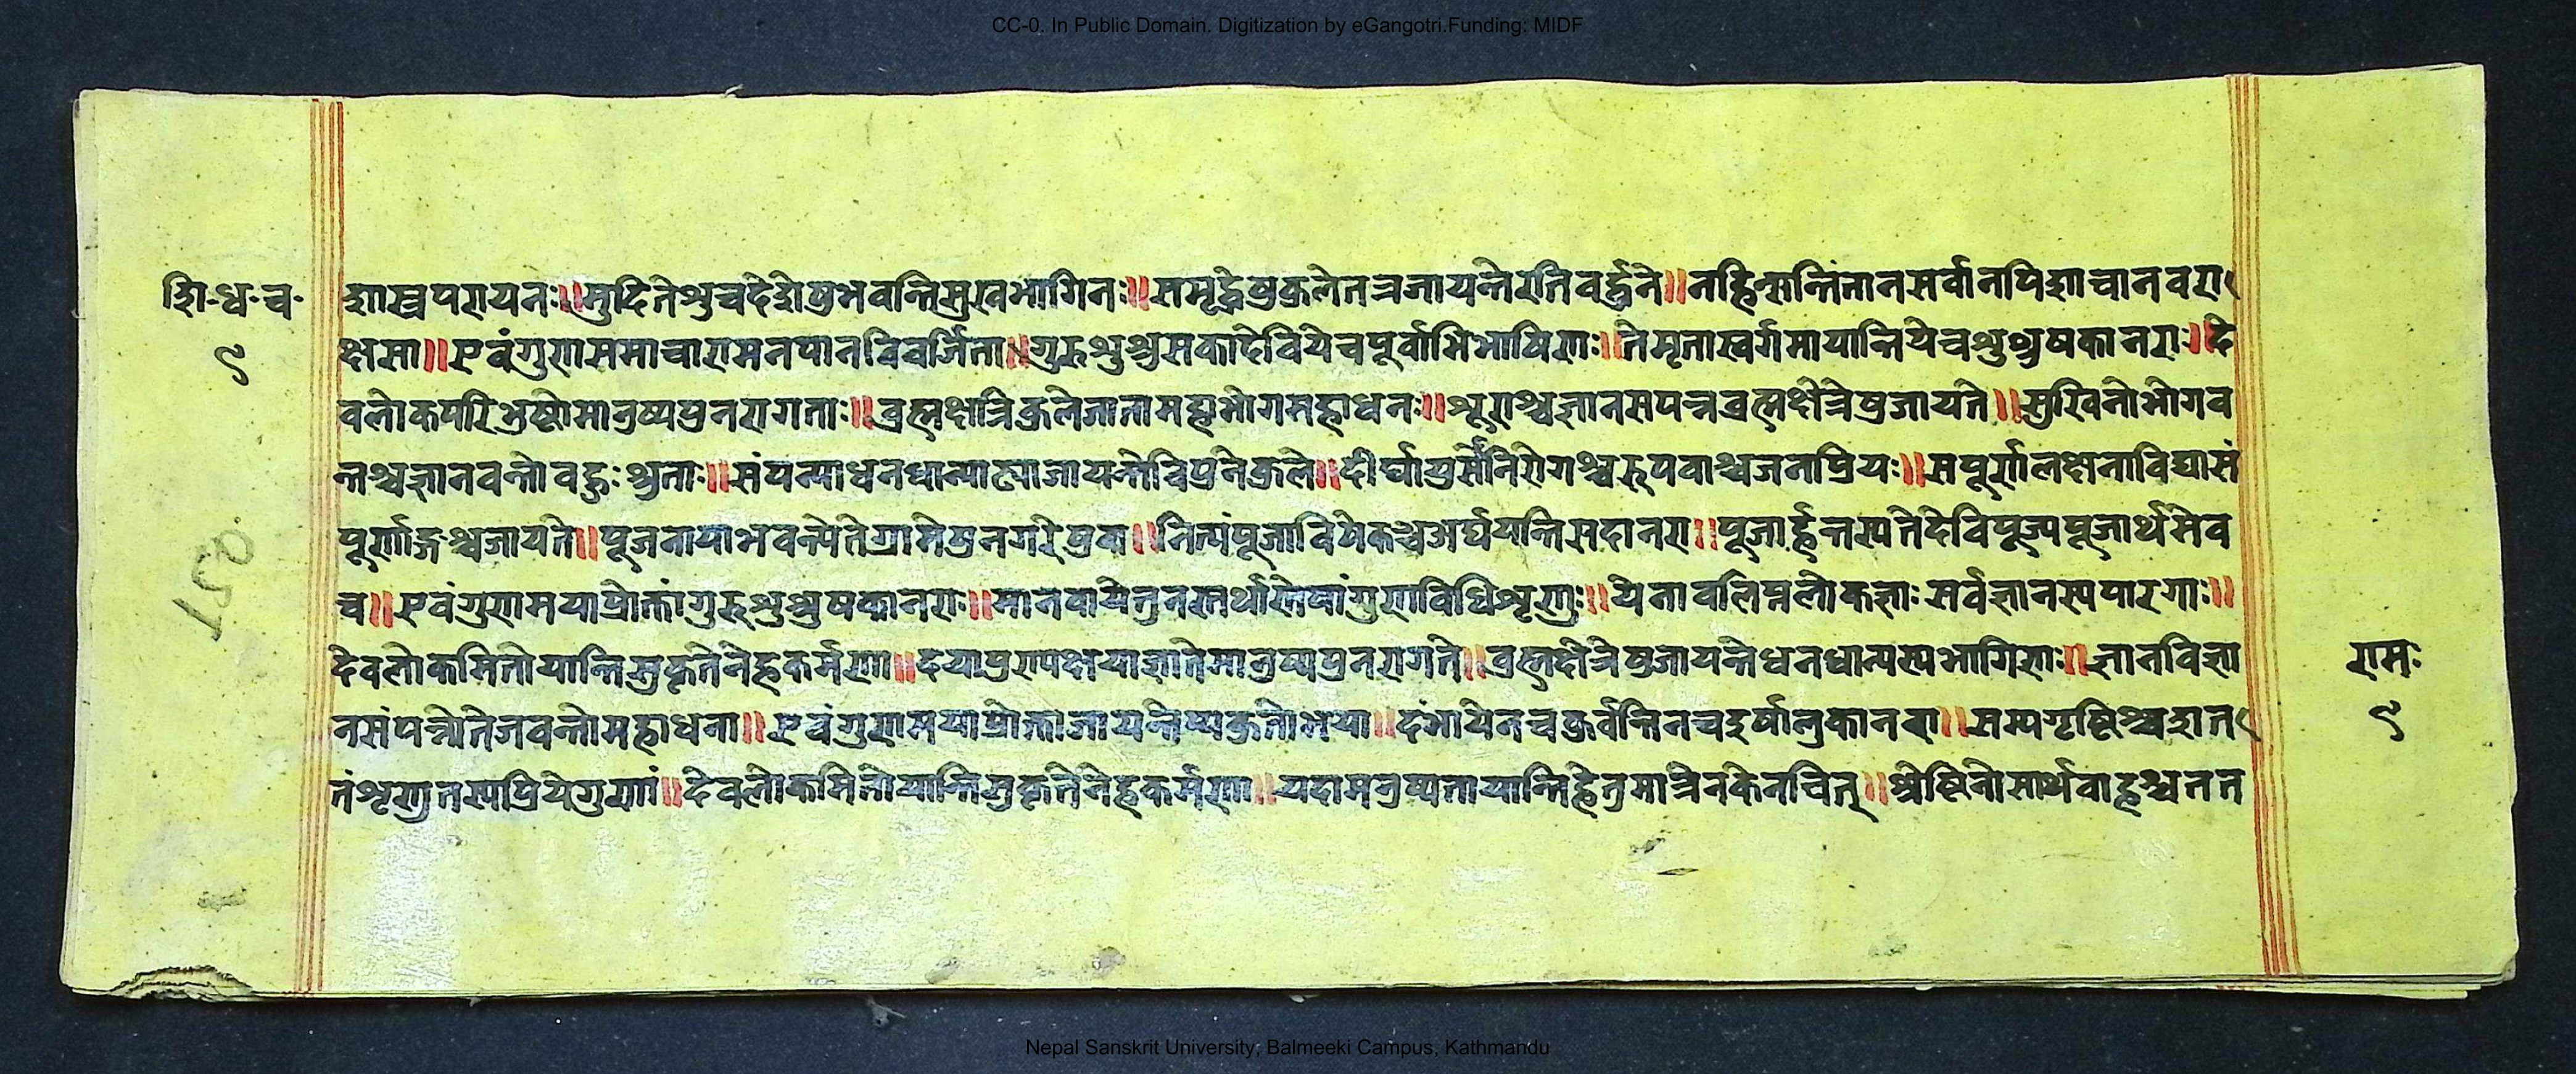 CC-0. In Public Domain. Digitization by eGangotri.Funding: MIDF
शि-ध-च-
९
शास्त्रपरायनः॥मुदितेशुचदेशेषुभवन्तिसुखभागिनः॥समृद्धेषुकुलेतत्रजायन्तेरतिवर्द्धने॥नहिन्सन्तिंतानसर्वानपिशाचानवरा
क्षसा॥एवंगुणसमाचारामनपानविवर्जिता॥गुरुशुश्रुसकादेवियेचपूर्वाभिभाषिणः॥तेमृतास्वर्गमायान्तियेचशुश्रुषकानराः॥दे
वलोकपरिभ्रष्टोमानुष्यपुनरागताः॥ब्रह्मक्षत्रिकुलेजातामहाभोगमहाधनः॥शूराश्चज्ञानसपन्नब्रह्मक्षेत्रेषुजायते॥सुखिनोभोगव
न्तश्चज्ञानवन्तोवहुःश्रुताः॥संपन्याधनधान्याढ्याजायन्तेविपुनेकुले॥दीर्घायुर्सोनिरोगश्चरुपवाश्चजनाप्रियः॥सपूर्णालक्षेनाविद्यासं
पूर्णाङ्गश्चजायते॥पूजनायाभवन्त्येतेग्रामेषुनगरेषुवा॥नित्यंपूजाविषेकञ्चअर्घयन्तिसदानरा॥पूजार्हन्तस्यतेदेविपूज्यपूजार्थमेव
च॥एवंगुणामयाप्रोक्तांगुरुशुश्रुषकानराः॥मानवायेतुनस्तर्थास्तेषांगुणविधिशृणुः॥येनावलिप्तलोकज्ञाःसर्वज्ञानस्यपारगाः॥
देवलोकमितोयान्तिसुकृतेनेहकर्मणा॥दयापुण्यक्षयाज्ञातेमानुष्यपुनरागते॥ब्रह्मक्षेत्रेषुजायन्तेधनधान्यस्यभागिणः॥ज्ञानविज्ञा
नसंपन्नोतेजवन्तोमहाधना॥एवंगुणामयाप्रोक्ताजायन्तेष्यकुतोभया॥दंभायेनचकुर्वन्तिनचइर्षालुकानरा॥सम्यगृष्टिश्चशत
तंशृणुतस्यप्रियेगुणां॥देवलोकमितोयान्तिसुकृतेनेहकर्मणा॥यदामनुष्यतायान्तिहेतुमात्रेनकेनचित्॥श्रेष्टिनोसार्थवाहश्चतत
रामः
९
Nepal Sanskrit University, Balmeeki Campus, Kathmandu